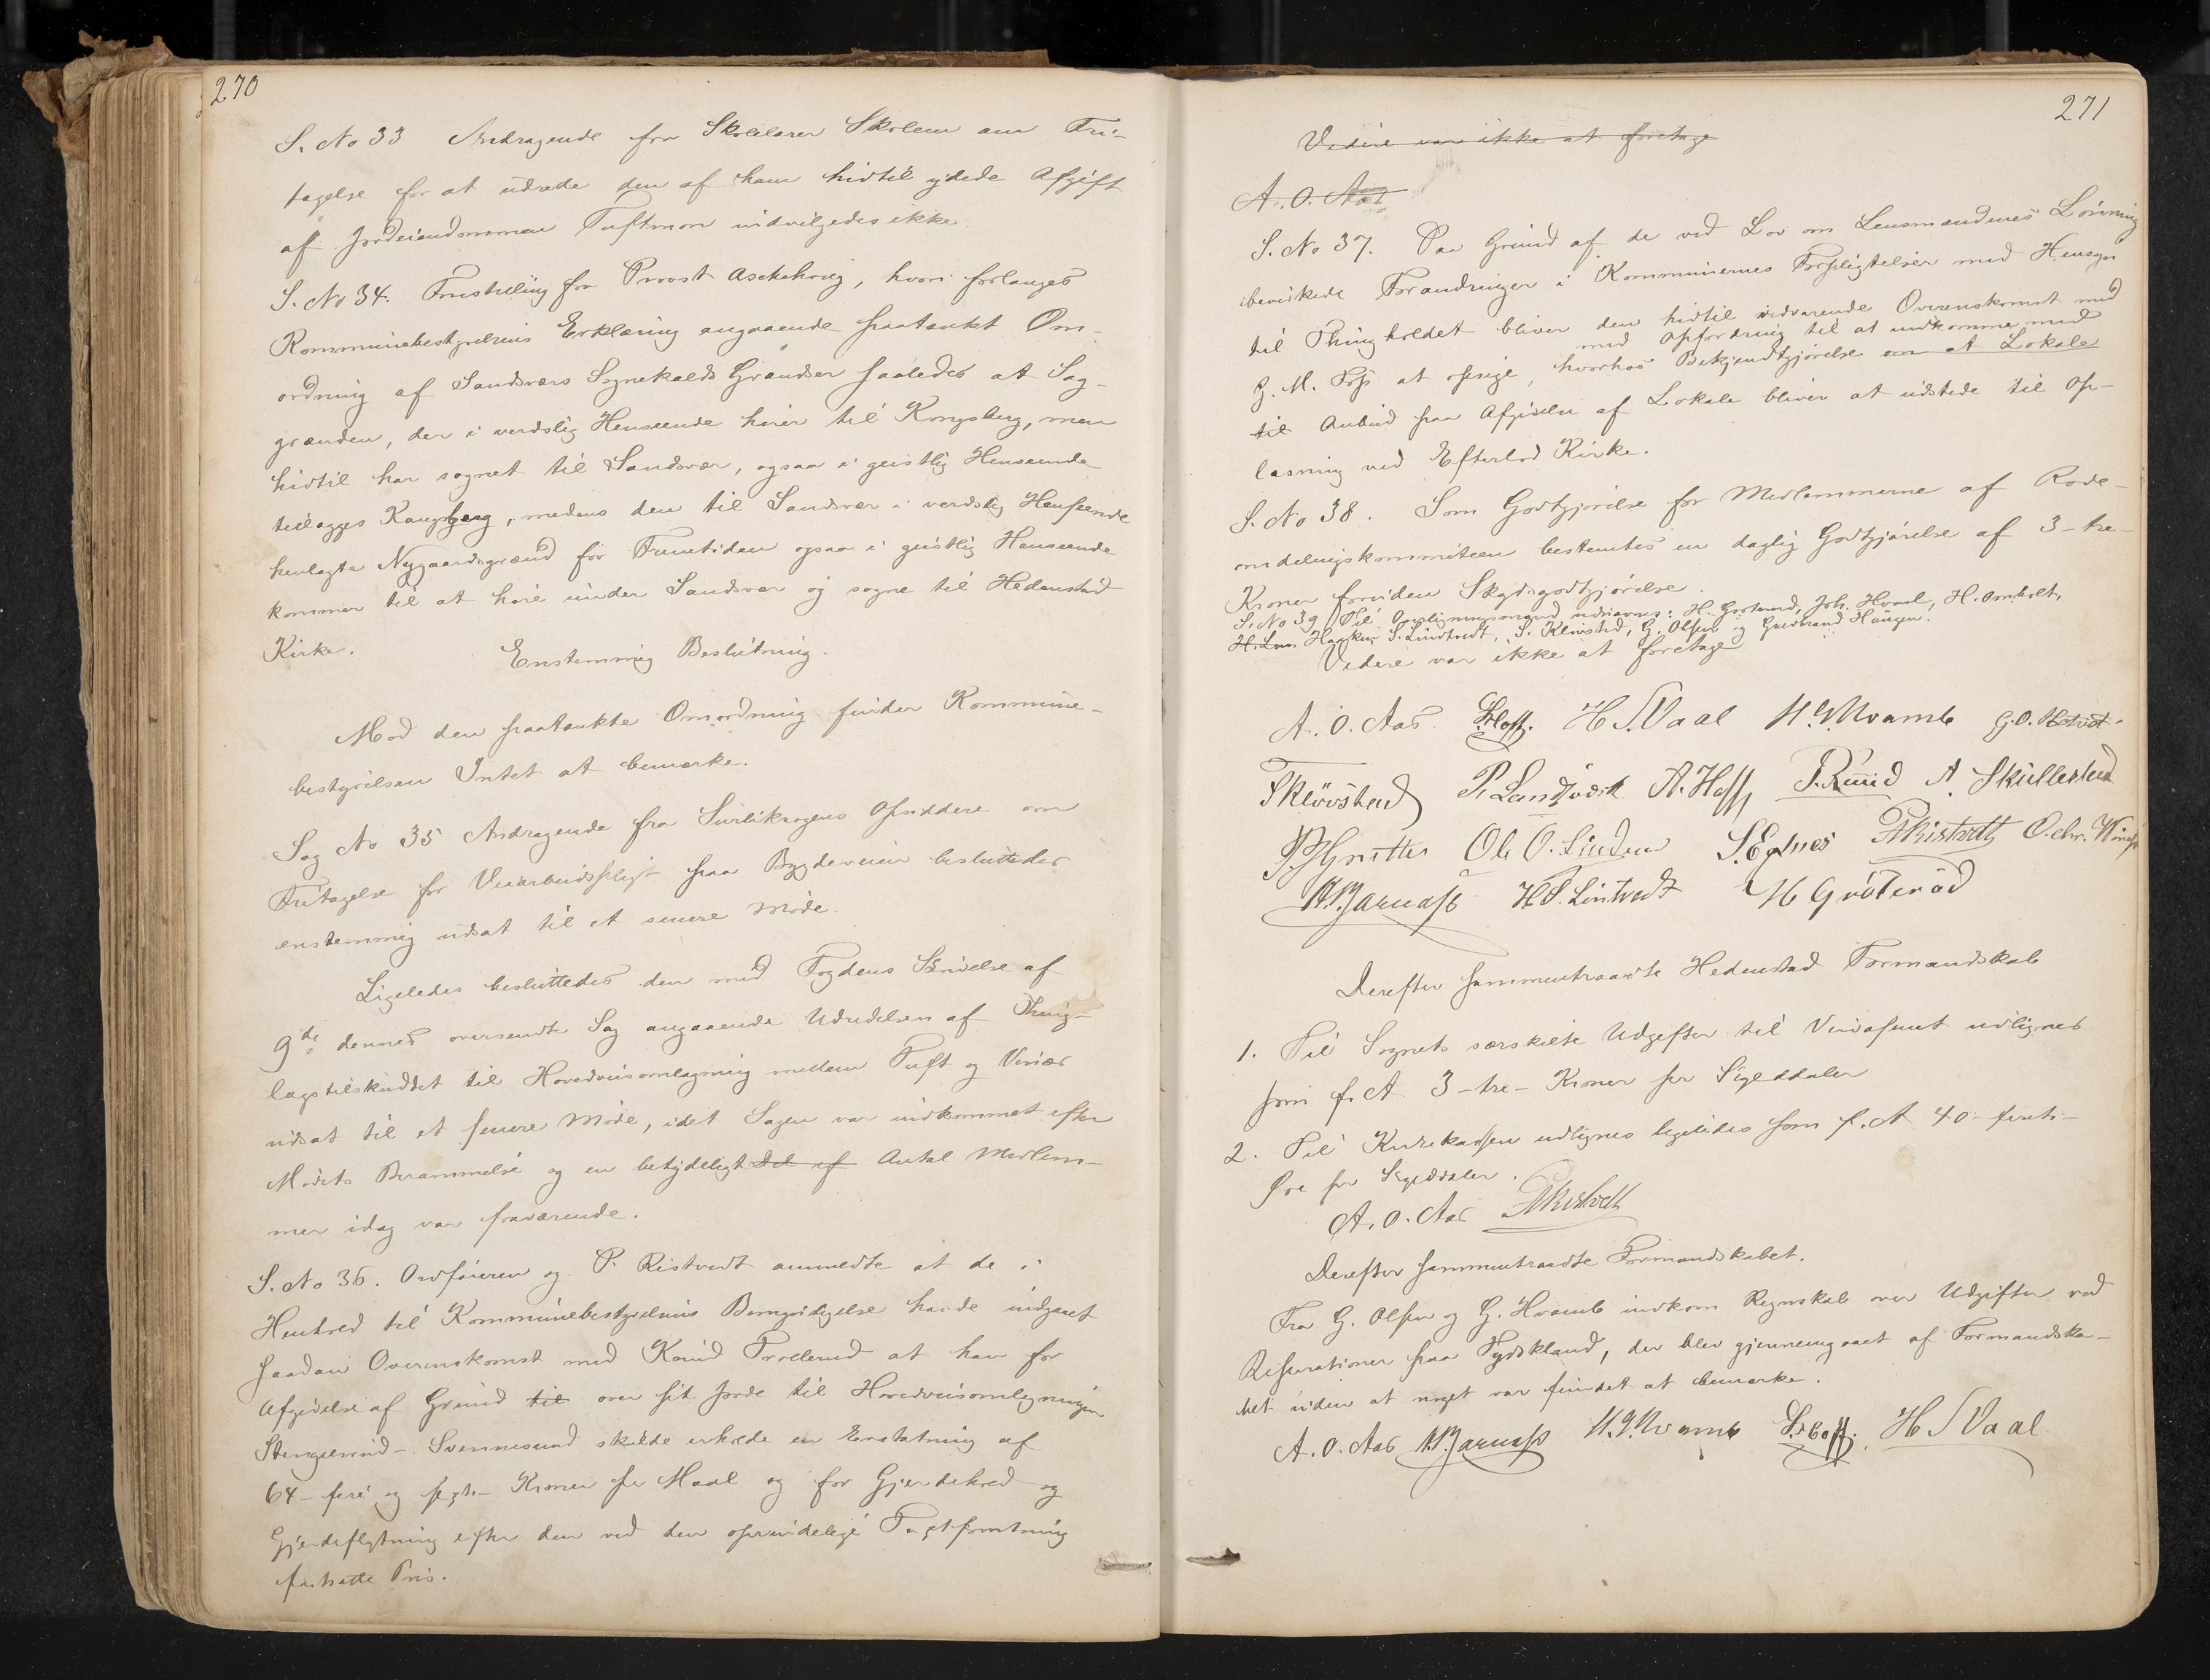 270
S. No 33 Andragende fra Skolelærer Skolem om Fri-
tagelse for at udrede den af ham hidtil ydede Afgift
af Jordeiendommen Tuftmon indvilgedes ikke.
S. No 34. Forestilling fra Provst Aschehoug, hvori forlanges
Kommunebestyrelsens Erklæring angaaende paatænkt Om-
ordning af Sandsværs Sognekalds Grændser saaledes at Sag-
grænden, der i verdslig Henseende hører til Kongsberg, men
hidtil har sognet til Sandsvær, ogsaa i geistlig Henseende
tillægges Kongsberg, medens den til Sandsvær i verdslig Henseende
henlagte Nygaardsgrænd for Fremtiden ogsaa i geistlig Henseende
kommer til at høre under Sandsvær og sogne til Hedenstad
Kirke.
Enstemmig Beslutning.
Mod den paatænkte Omordning finder Kommune-
bestyrelsen Intet at bemærke.
Sag No 35 Andragende fra Opsiddere om
Fritagelse for Veiarbeidspligt paa Bygdeveien besluttedes
enstemmig udsat til et senere Møde.
Ligeledes besluttedes den med Fogdens Skrivelse af
9de dennes oversendte Sag angaaende Udredelsen af Thing-
lagstilskuddet til Hovedveisomlægning mellem Tuft og
udsat til et senere Møde, idet Sagen var indkommet efter
Mødets Berammelse og en betydeligt Del af Antal Medlem-
mer idag var fraværende.
S. No 36. Ordføreren og P. Ristvedt anmeldte at de i
Henhold til Kommunebestyrelsens Bemyndigelse havde indgaaet
saadan Overenskomst med Knud Trollerud at han for
Afgivelse af Grund til over sit Jorde til Hovedveisomlægningen
Stengelsrud - Svennesund skulde erholde en Erstatning af
64 - firè og segsti - Kroner pr Maal og for Gjerdehold og
Gjerdeflytning efter den ved den oprindelige Taxtforretning
fastsatte Pris.
271
Videre var ikke at foretage
A. O. Aas
S. No 37. Paa Grund af de ved Lov om Lensmændenes Lønning
bevirkede Forandringer i Kommunernes Forpligtelser med Hensyn
til Thingholdet bliver den hidtil vedvarende Overenskomst med
med Opfordring til at indkomme med
G. M. Fos at opsige, hvorhos Bekjendtgjørelse om at Lokale
til Anbud paa Afgivelse af Lokale bliver at udstede til Op-
læsning ved Efteløt Kirke.
S. No 38. Som Godtgjørelse for Medlemmerne af Rode-
omdelingskommiteen bestemtes en daglig Godtgjørelse af 3 - tre -
Kroner foruden Skydsgodtgjørelse.
S. No 39 Til Omligningsmænd udnævnes: H. Grøterud, Joh. Hvaal, H. Omholt,
H. Haakin S. Lindtvedt, S. Kløvstad, G. Olsen og Gudbrand Haugen.
Videre var ikke at foretage
A. O. Aas S. Hoff. H S. Vaal H. G. Hvamb G. O.
S Kløvstad P. Landsværk A. Hoff P. Ruud A. Skullerud
Ole O. Linden S. Egnes P Ristvedt O. chr.
H. S. Lintvedt H Grøterød
Derefter sammentraadte Hedenstad Formandskab
1. Til Sognets særskilte Udgifter til Veivæsenet udlignes
som f. A 3 - tre - Kroner per Skylddaler
2. Til Kirkekassen udlignes ligeledes som f. A 40 - firti -
Øre per Skylddaler.
A. O. Aas P Ristvedt
Derefter sammentraadte Formandskabet.
Fra G. Olsen og G. Hvamb indkom Regnskab over Udgifter ved
Reparationer paa Tydskland, der blev gjennemgaaet af Formandska-
bet uden at noget var fundet at bemærke.
A. O. Aas H. G. Hvamb S. Hoff. H S. Vaal